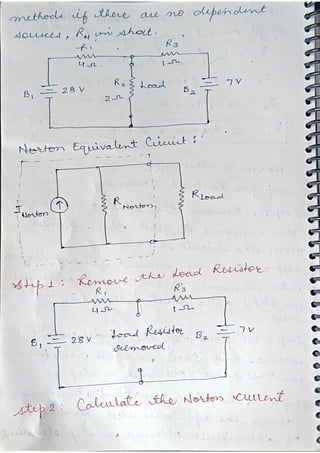 methods if there are no dependent
sources, RN in short.
R1
R3
4Ω
1Ω
B1
28 V
R2
Load
2Ω
B2
7V
Norton Equivalent Circuit :
I Norton
R Norton
R Load
Step 1 : Remove the Load Resistor
R1
R3
4Ω
1Ω
B1
28 V
Load Resistor
removed
B2
7V
step 2 : Calculate the Norton current